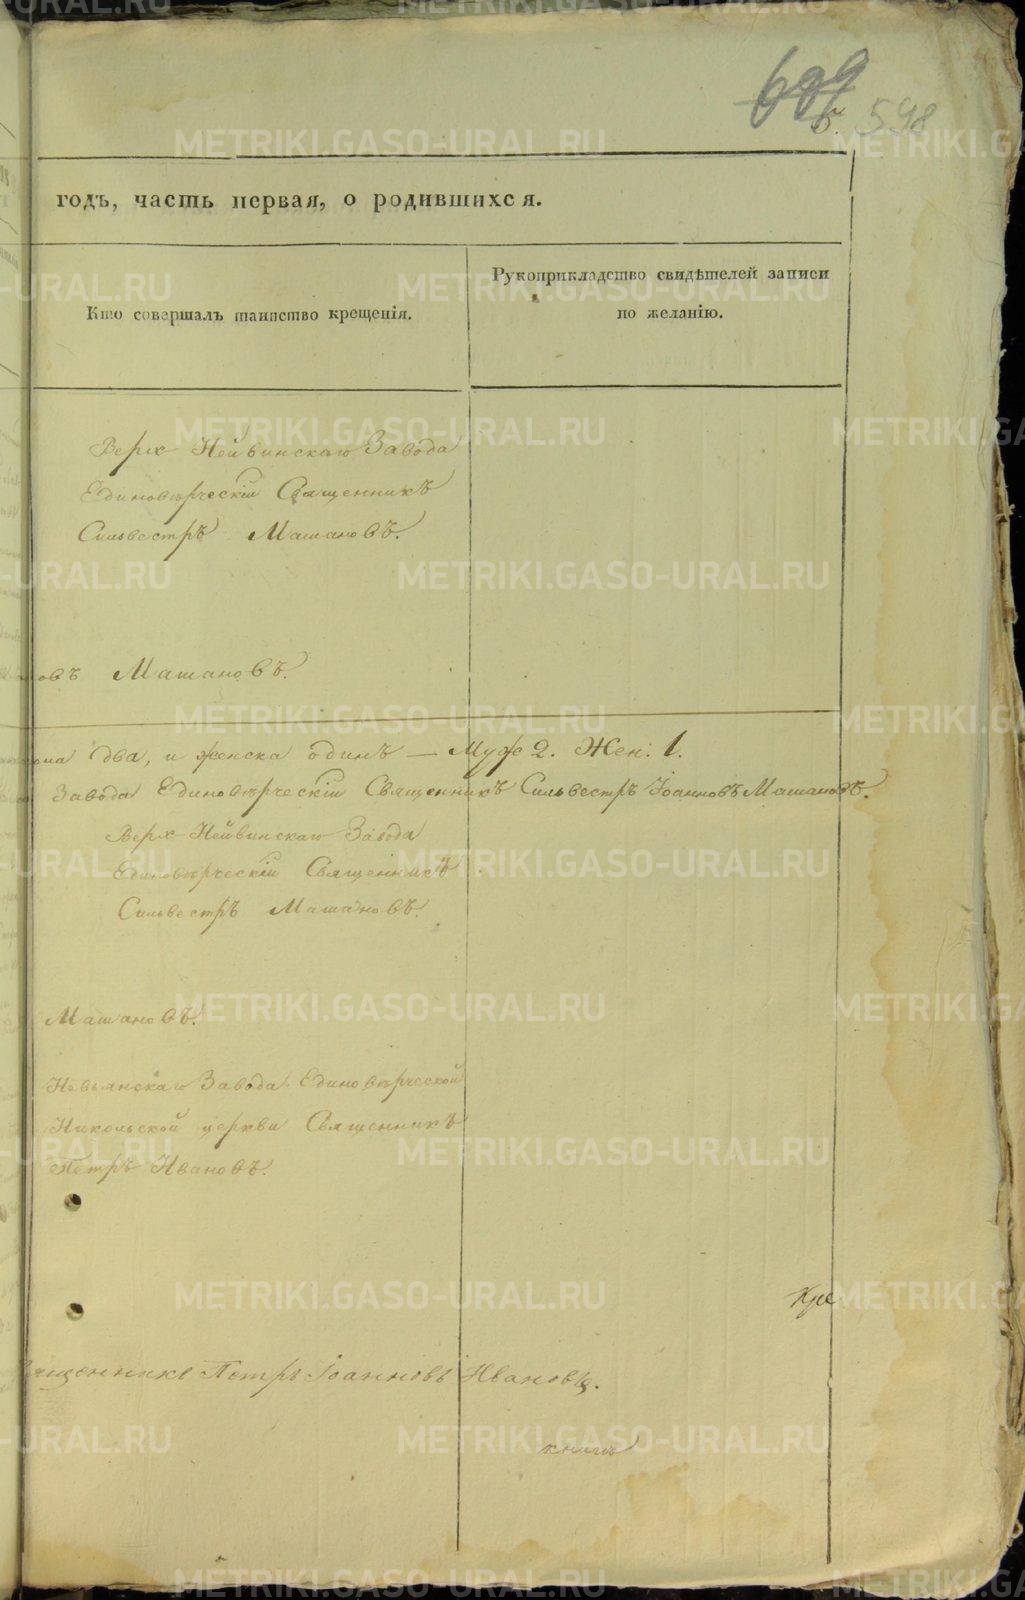 5. 598
годъ, часть первая, о родившихся.
Кто совершалъ таинство крещенія.
Рукоприкладство свидѣтелей записи
по желанію.
Верх Нейвинскаго Завода
Единовѣрческій Священникъ
Сильвестръ Машановъ.
овъ Машановъ.
два, и женска одинъ — Муж 2. Жен: 1.
Завода Единовѣрческій Священникъ Сильвестръ Іоанновъ Машановъ.
Верх Нейвинскаго Завода
Единовѣрческій Священникъ
Сильвестръ Машановъ.
Машановъ.
Невьянскаго Завода Единовѣрческой
Никольской церкви Священникъ
Петръ Ивановъ.
Кре
Петръ Іоанновъ Ивановъ.
книги
METRIKI.GASO-URAL.RU